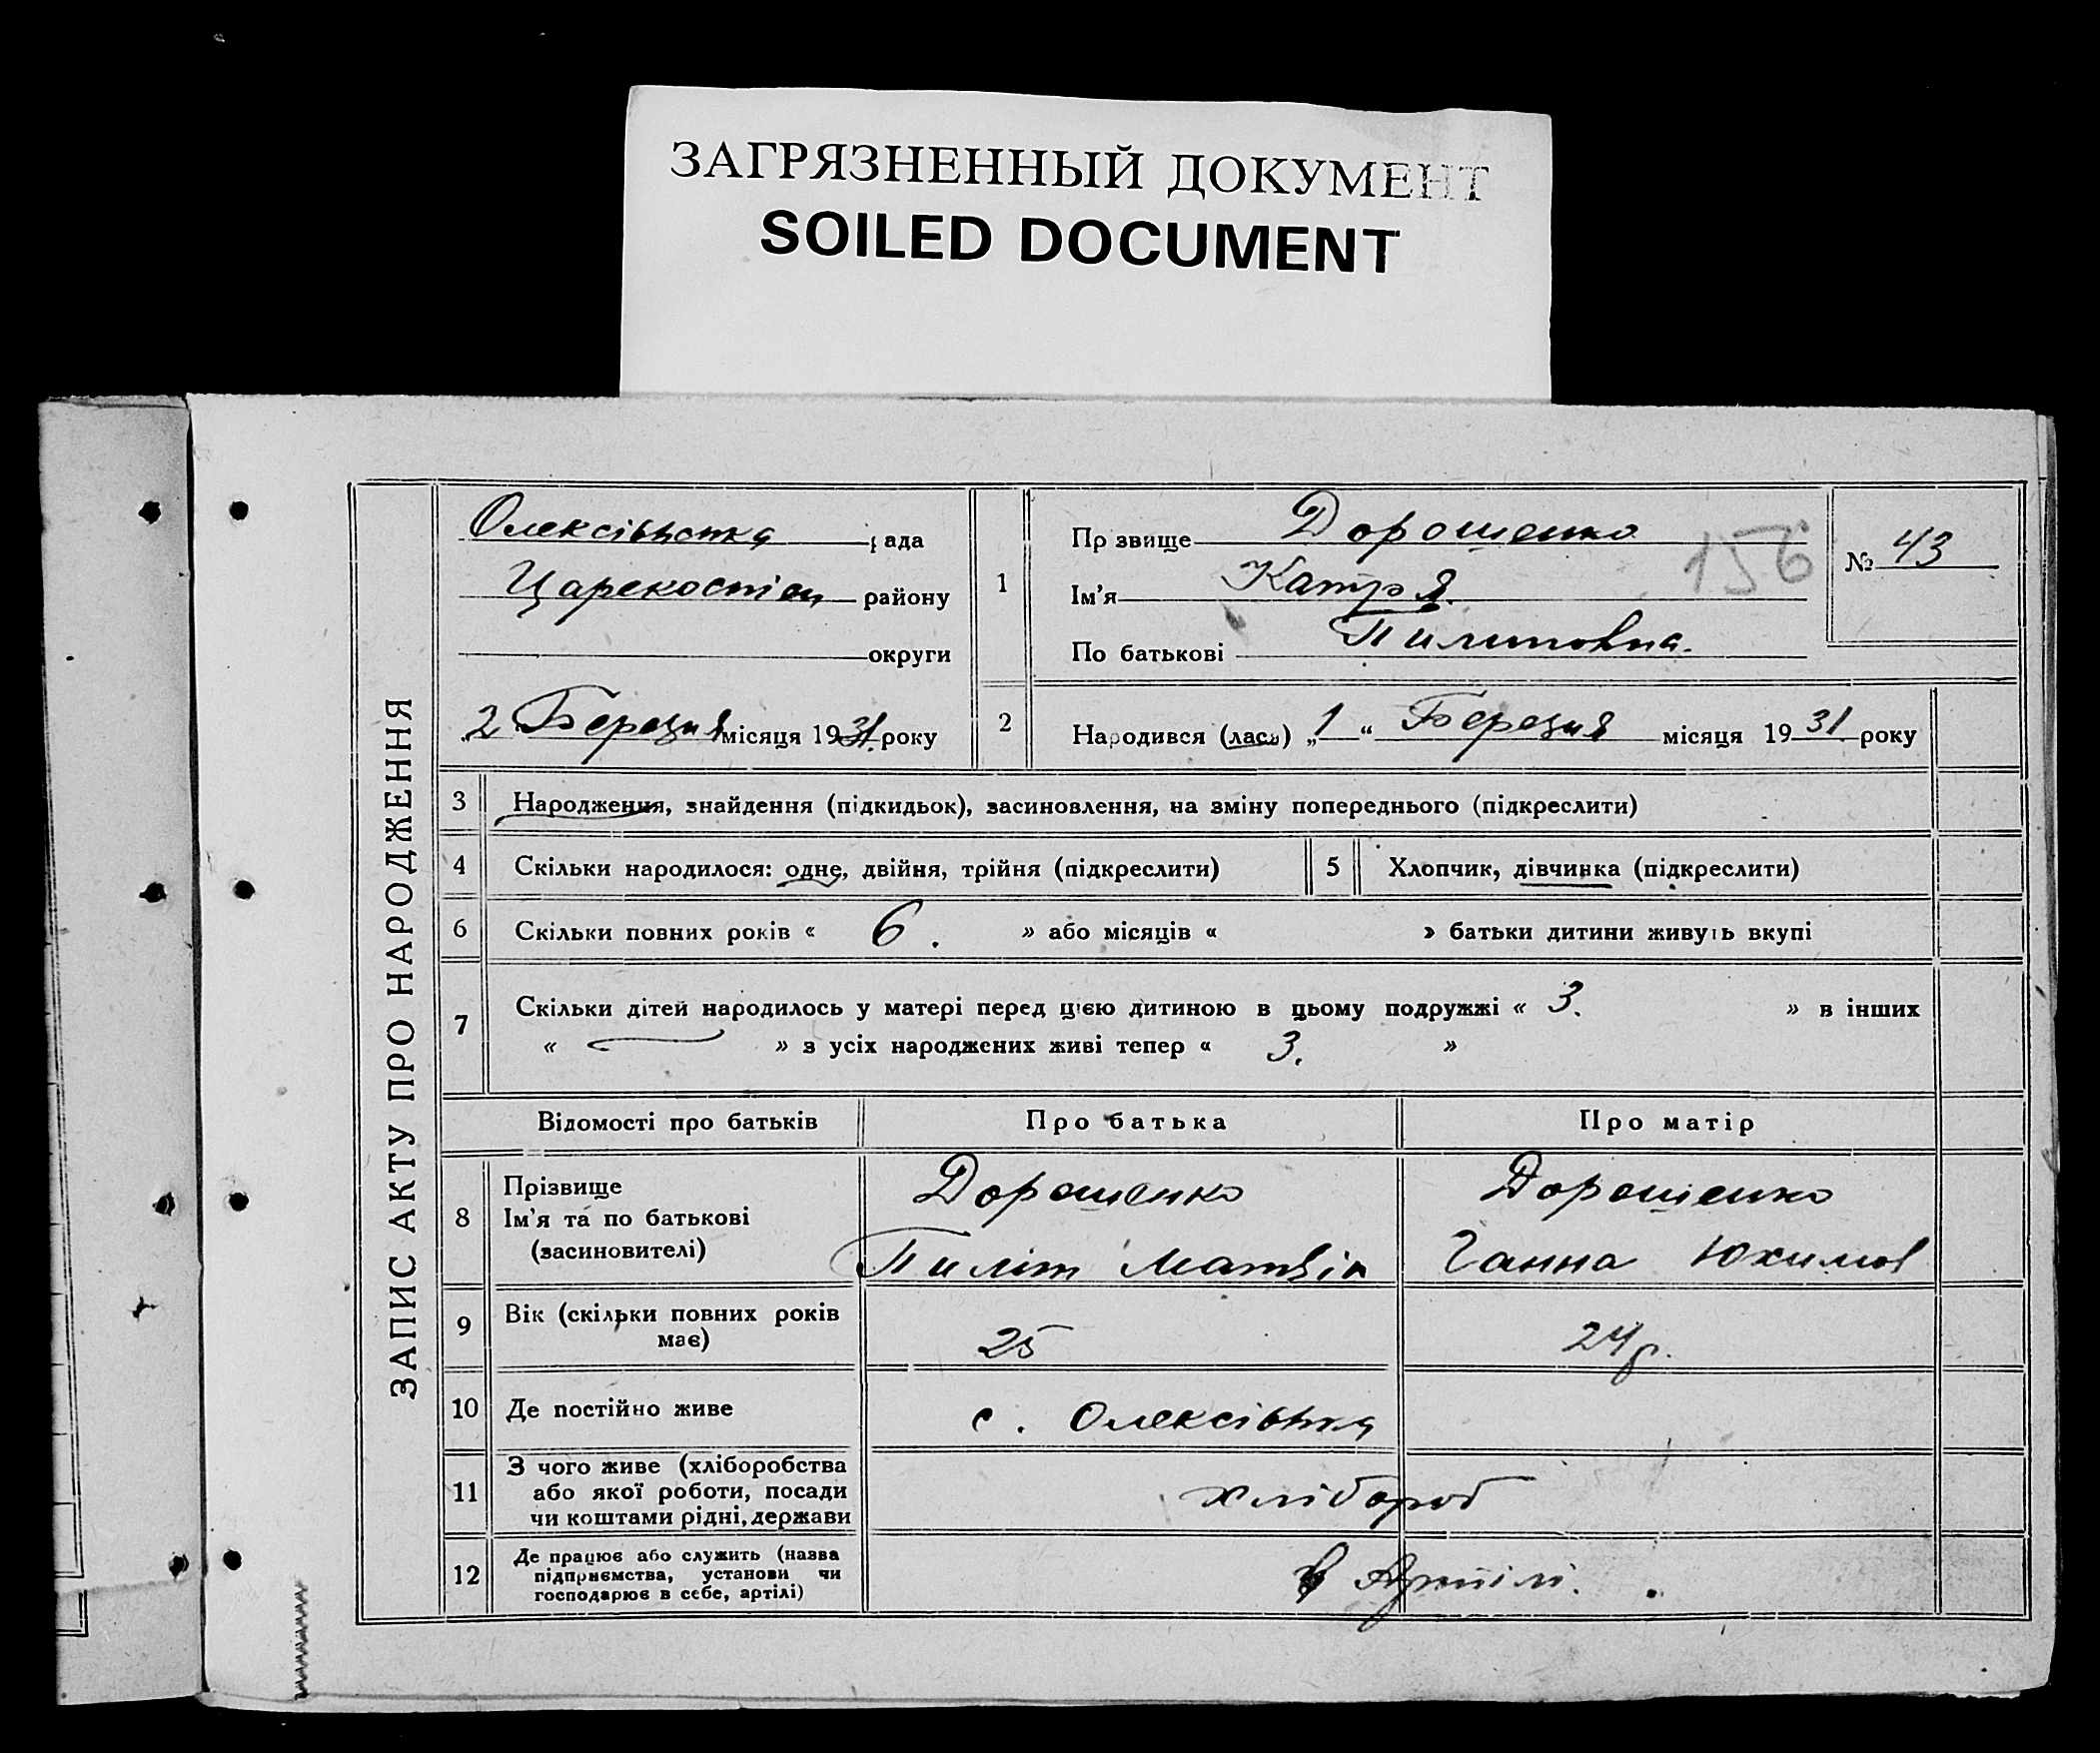 ЗАГРЯЗНЕННЫЙ ДОКУМЕНТ
SOILED DOCUMENT
ЗАПИС АКТУ ПРО НАРОДЖЕННЯ
Олексівська рада
Царекостян району
округи
„2 Березня місяця 1931. року
1
Прізвище Дорошенко
Ім'я Катря.
По батькові Пилиповна.
156
№ 43
2
Народився (лась) „1“ Березня місяця 1931. року
3 Народження, знайдення (підкидьок), засиновлення, на зміну попереднього (підкреслити)
4 Скільки народилося: одне, двійня, трійня (підкреслити)
5 Хлопчик, дівчинка (підкреслити)
6 Скільки повних років « 6. » або місяців « » батьки дитини живуть вкупі
7 Скільки дітей народилось у матері перед цією дитиною в цьому подружжі « 3. » в інших
« — » з усіх народжених живі тепер « 3. »
Відомості про батьків Про батька Про матір
8 Прізвище
Ім'я та по батькові
(засиновителі)
Дорошенко
Пиліп Матвій
Дорошенко
Ганна Юхимов
9 Вік (скільки повних років
має)
25
24 р.
10 Де постійно живе
с. Олексівка
11 З чого живе (хліборобства
або якої роботи, посади
чи коштами рідні, держави
хлібороб
12 Де працює або служить (назва
підприємства, установи чи
господарює в себе, артілі)
в Артілі.